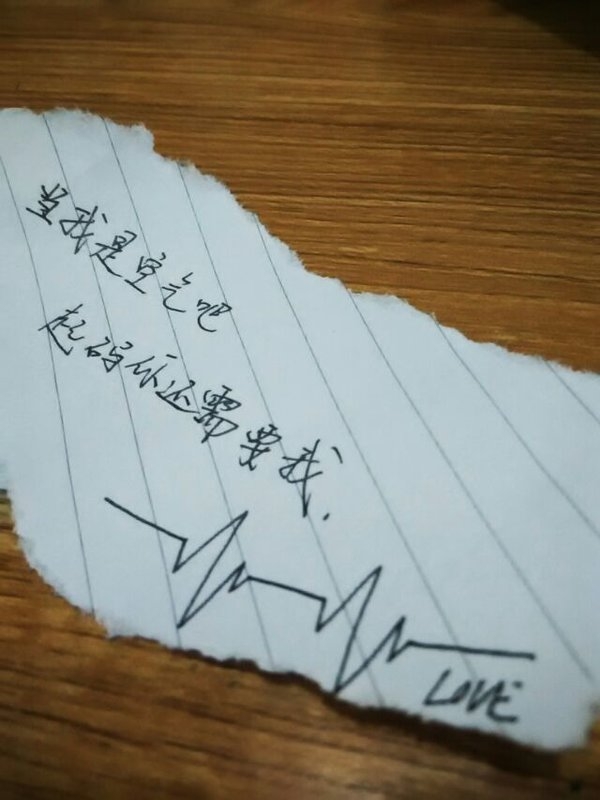 当我是空气吧
起码你还需要我.
LOVE